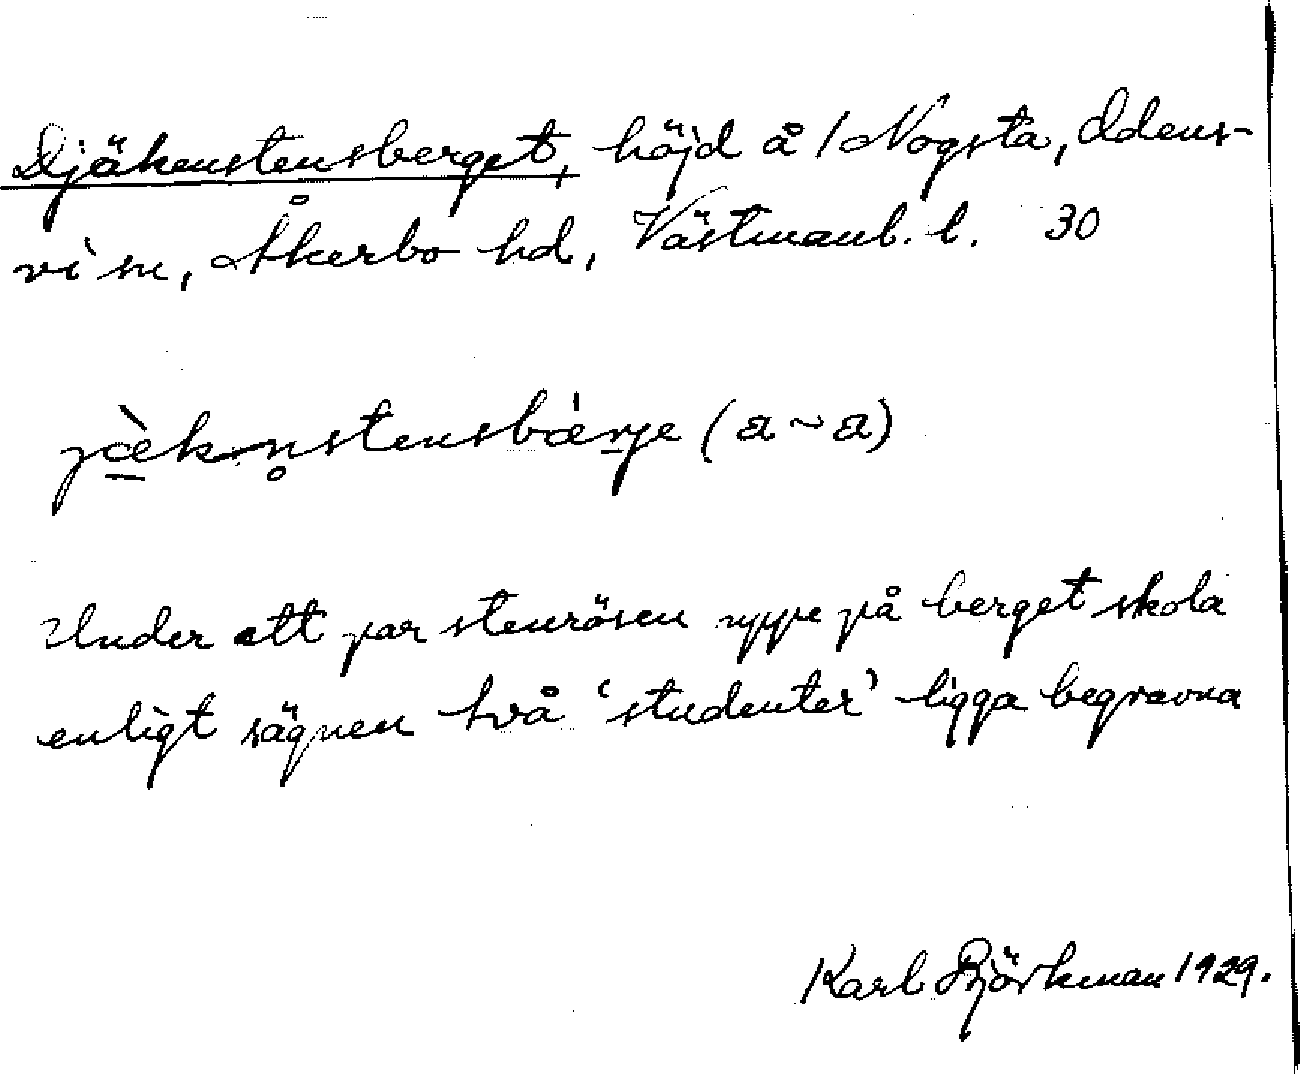 Djäkenstensberget, höjd å / Nogsta, Odens-
vi sn, Åkerbo hd, Västmanl. l. 30
jæ̀kn̥stensbæ̀rje (a ~ a)
Under ett par stenrösen uppe på berget skola
enligt sägnen två 'studenter' ligga begravna
Karl Björkman 1929.